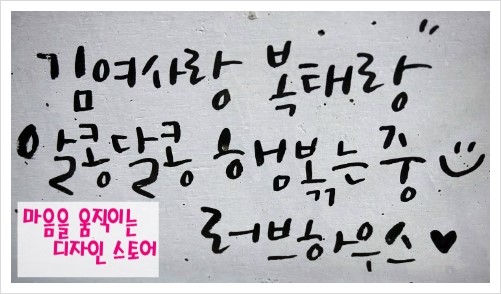 김여사랑 복태랑"
알콩달콩 행볶는중
러브하우스♥
마음을 움직이는
디자인 스토어